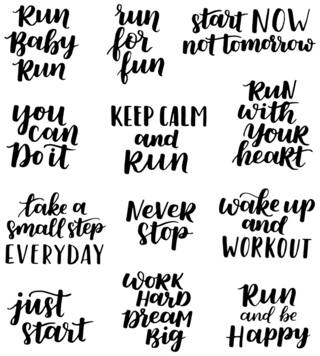 Run
Baby
Run
run
for
fun
start NOW
not tomorrow
you
can
Do it
KEEP CALM
and
Run
RuN
with
Your
heaRt
take a
small step
EVERYDAY
NeveR
stop
wake up
and
WORKOUT
just
start
WoRK
HaRD
DReam
Big
Run
and be
Happy